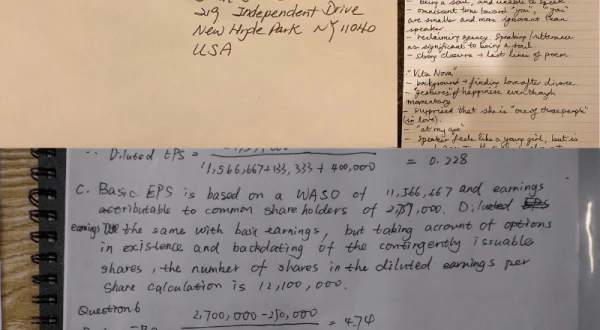 219 Independent Drive
New Hyde Park NY 11040
USA
being a soul, and unable to speak.
- omniscient tone toward "you", "you"
are smaller and more ignorant than
speaker.
- reclaiming agency, speaking/utterance
as significant to being a soul
- strong closure → last lines of poem
"Vita Nova"
- background → finding love after divorce
- "gestures of happiness even though
momentary
- surprised that she is "one of those people"
(in love).
- "at my age"
- Speaker feels like a young girl, but is
∴ Diluted EPS = 
11,566,667+133,333 + 400,000 = 0.228
C. Basic EPS is based on a WASO of 11,566,667 and earnings
attributable to common shareholders of 2,759,000. Diluted EPS
earnings the same with basic earnings, but taking account of options
in existence and backdating of the contingently issuable
shares, the number of shares in the diluted earnings per
share calculation is 12,100,000.
Question 6
2,700,000 - 250,000 = 4.74